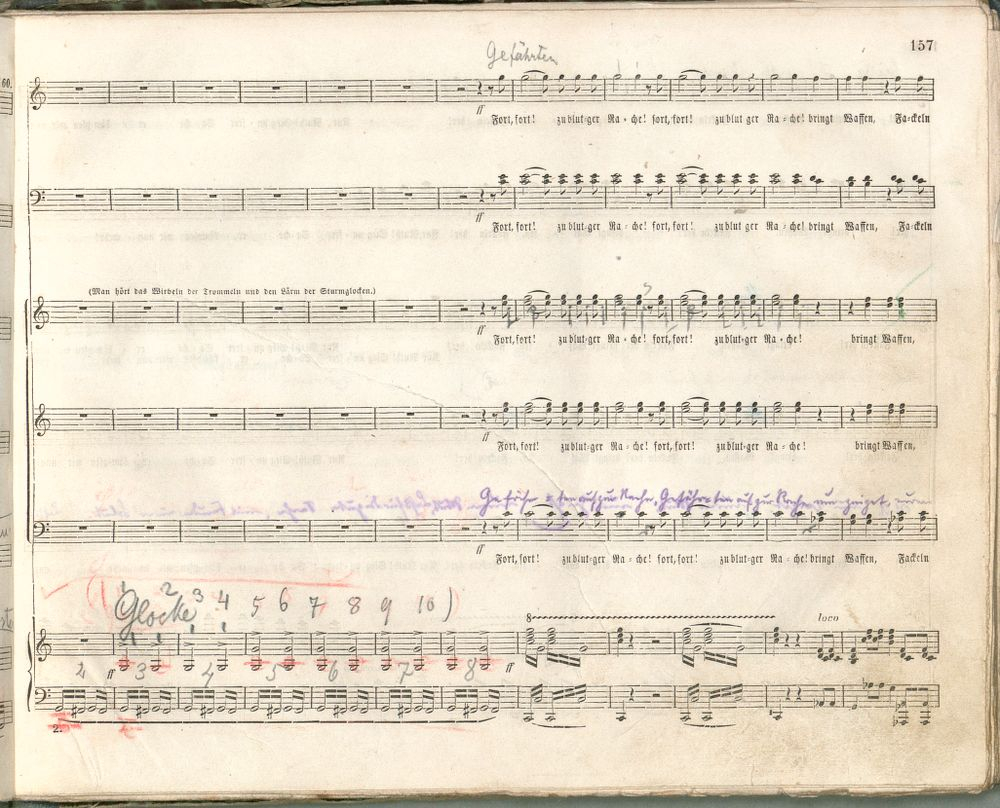 157
60.
Gefährten
ff
Fort, fort! zu blut-ger Ra-che! fort, fort! zu blut ger Ra-che! bringt Waffen, Fa-ckeln
ff
Fort, fort! zu blut-ger Ra-che! fort, fort! zu blut ger Ra-che! bringt Waffen, Fa-ckeln
(Man hört das Wirbeln der Trommeln und den Lärm der Sturmglocken.)
ff
Fort, fort! zu blut-ger Ra-che! fort, fort! zu blut-ger Ra-che! bringt Waffen,
ff
Fort, fort! zu blut-ger Ra-che! fort, fort! zu blut-ger Ra-che! bringt Waffen,
Gefähr-ten auf zur Rache, Gefähr-ten auf zur Rache
ff
Fort, fort! zu blut-ger Ra-che! fort, fort! zu blut-ger Ra-che! bringt Waffen, Fackeln
1 2 3 4 5 6 7 8 9 10)
Glocke
8 loco
2 ff 3 4 5 6 7 8 ff
2.